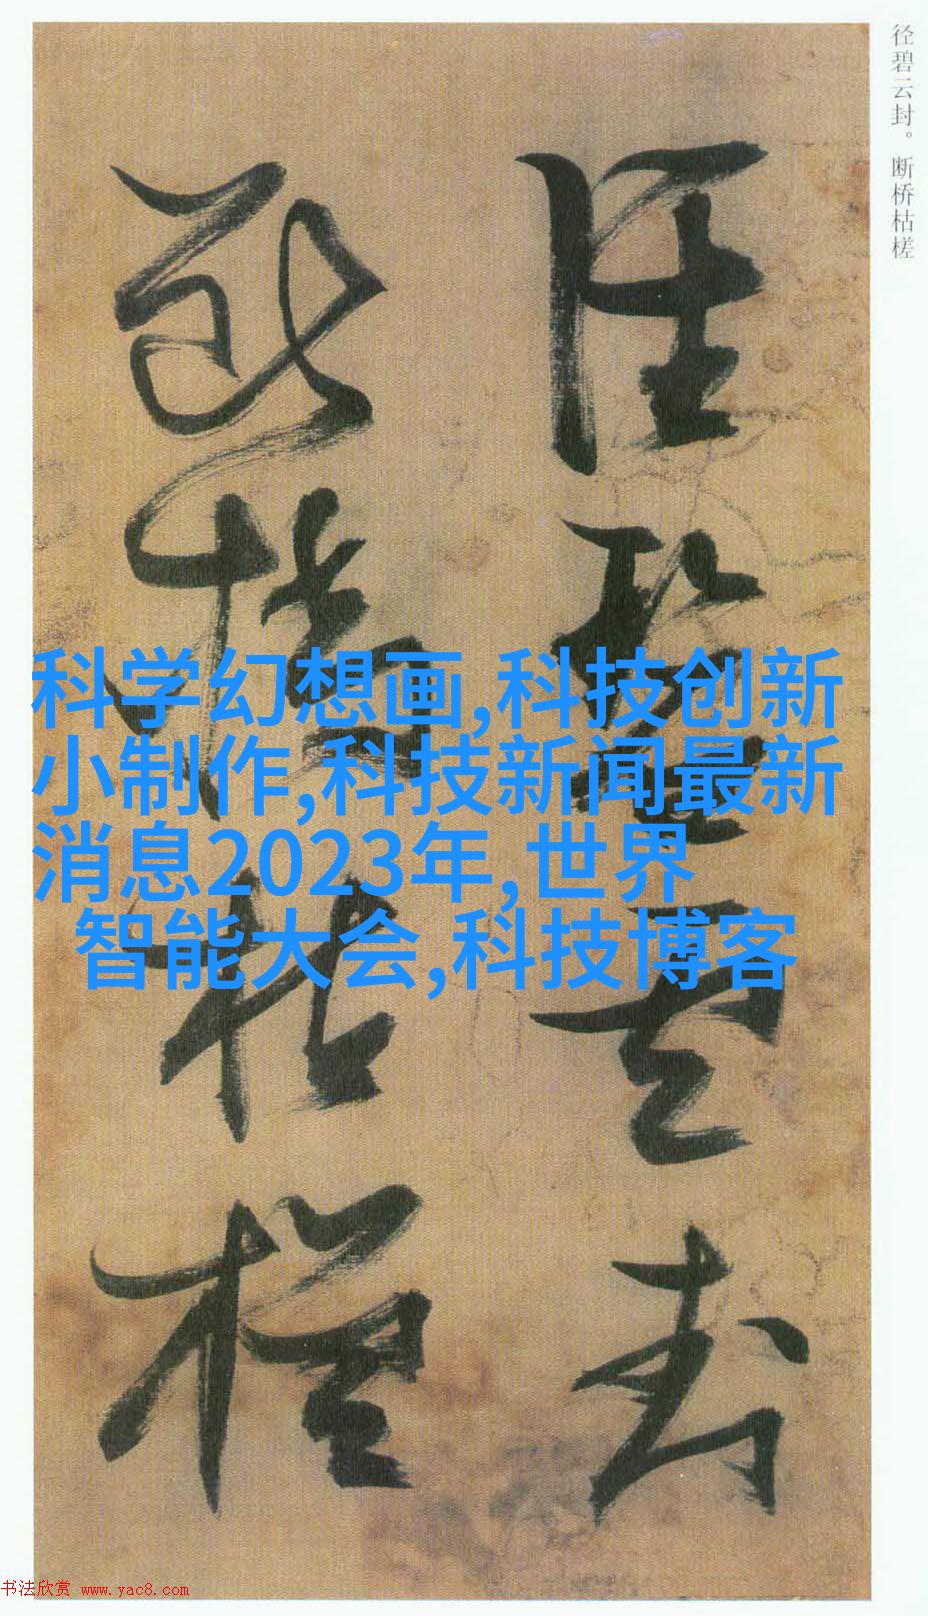 径碧云封。断桥枯槎
径碧云封
断桥枯槎
科学幻想画,科技创新
小制作,科技新闻最新
消息2023年,世界
智能大会,科技博客
书法欣赏 www.yac8.com